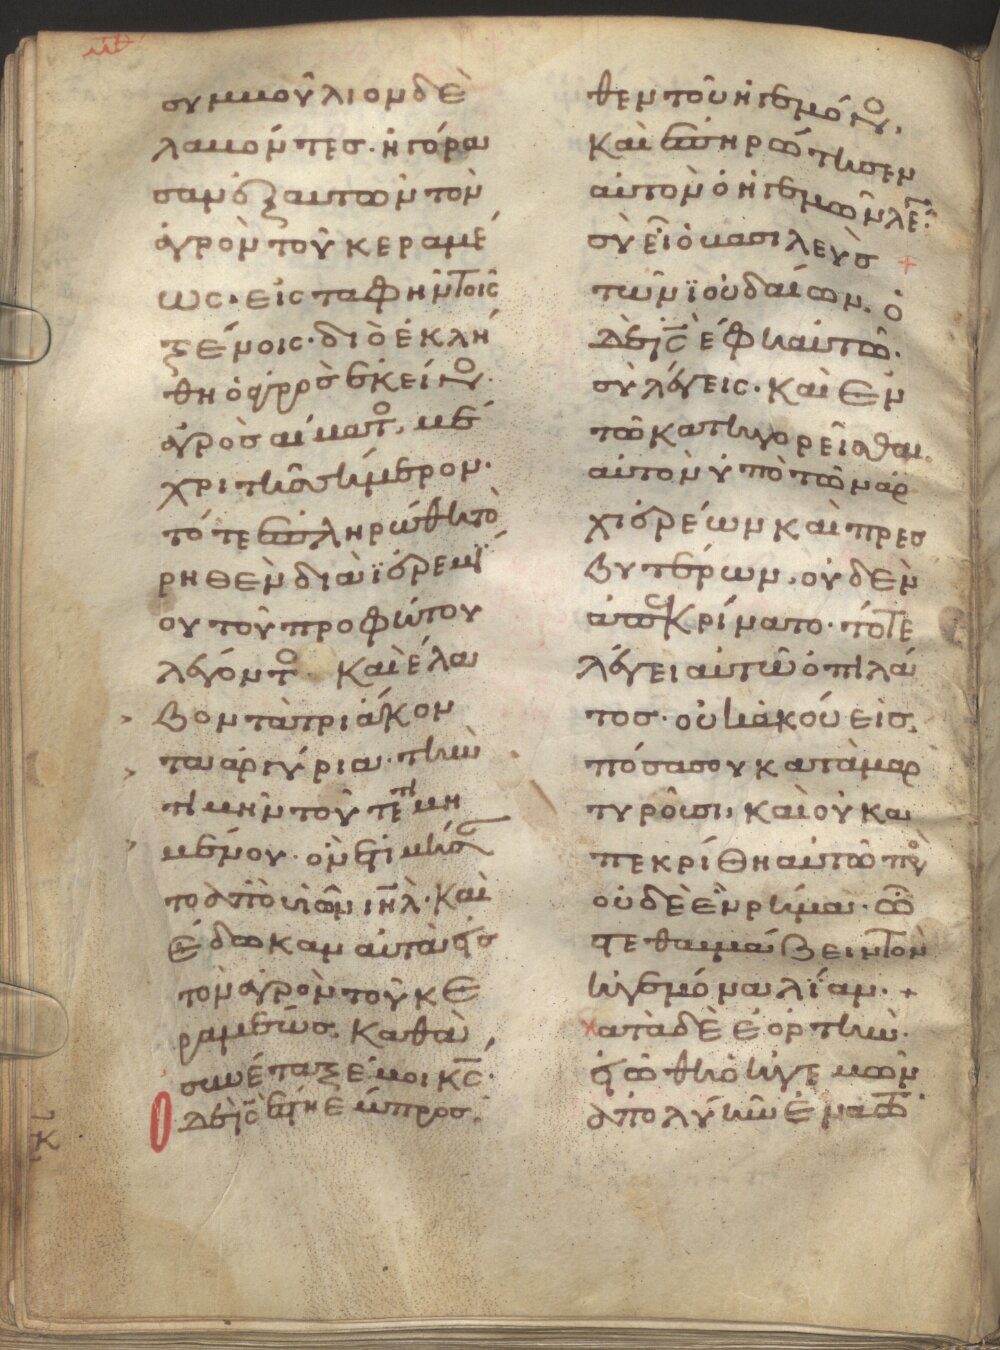 συμβούλιον δὲ
λαβόντες· ἠγόρα
σαν ἐξ αυτῶν τὸν
ἀγρὸν τοῦ κεραμέ
ως· εἰς ταφὴν τοῖς
ξένοις· διὸ ἐκλή
θη ὁ ἀγρὸς ἐκείνο
ἀγρὸς αίματο, μέ
χρι τῆς σήμερον·
τότε ἐπληρώθη τὸ
ρηθὲν διὰ ἱερεμί
ου τοῦ προφήτου
λέγοντο· Καὶ έλα
βον τὰ τριάκον
τα ἀργύρια· τὴν
τιμὴν τοῦ τετιμη
μένου· ὃν ἐτιμήσα
το ἀπὸ υἱῶν ιηλ· Καὶ
ἔδωκαν αὐτὰ εἰς
τὸν ἀγρὸν τοῦ κε
ραμέως. Καθὰ
συνέταξέ μοι κς·
Ο δὲ ις ἔστη ἔμπροσ
θεν τοῦ ἡγεμόνο,
καὶ ἐπηρώτησεν
αὐτὸν ὁ ἡγεμὼν λέ·
σὺ εἶ ὁ βασιλεὺς +
τῶν ϊουδαίων. ὁ
δὲ ις ἔφη αὐτῶ·
σὺ λέγεις· καὶ ἐν
τῶ κατηγορεῖσθαι
αὐτὸν ὑπὸ τῶν ἀρ
χιερέων καὶ πρεσ
βυτέρων, οὐδὲν
ἀπεκρίνατο· τότε
λέγει αὐτῶ ὁ πιλά
τος· οὐκ ἀκούεις.
πόσα σου καταμαρ
τυροῦσι, καὶ οὐκ ἀ
πεκρίθη αὐτῶ πρ
οὐδὲ ἓν ρῆμα· ὥ
στε θαυμάζειν τὸν
ἡγεμόνα λίαν· +
Κατὰ δὲ ἑορτὴν·
εἰώθη ὁ ἡγεμὼν
ἀπολύειν ἕνα τῶ